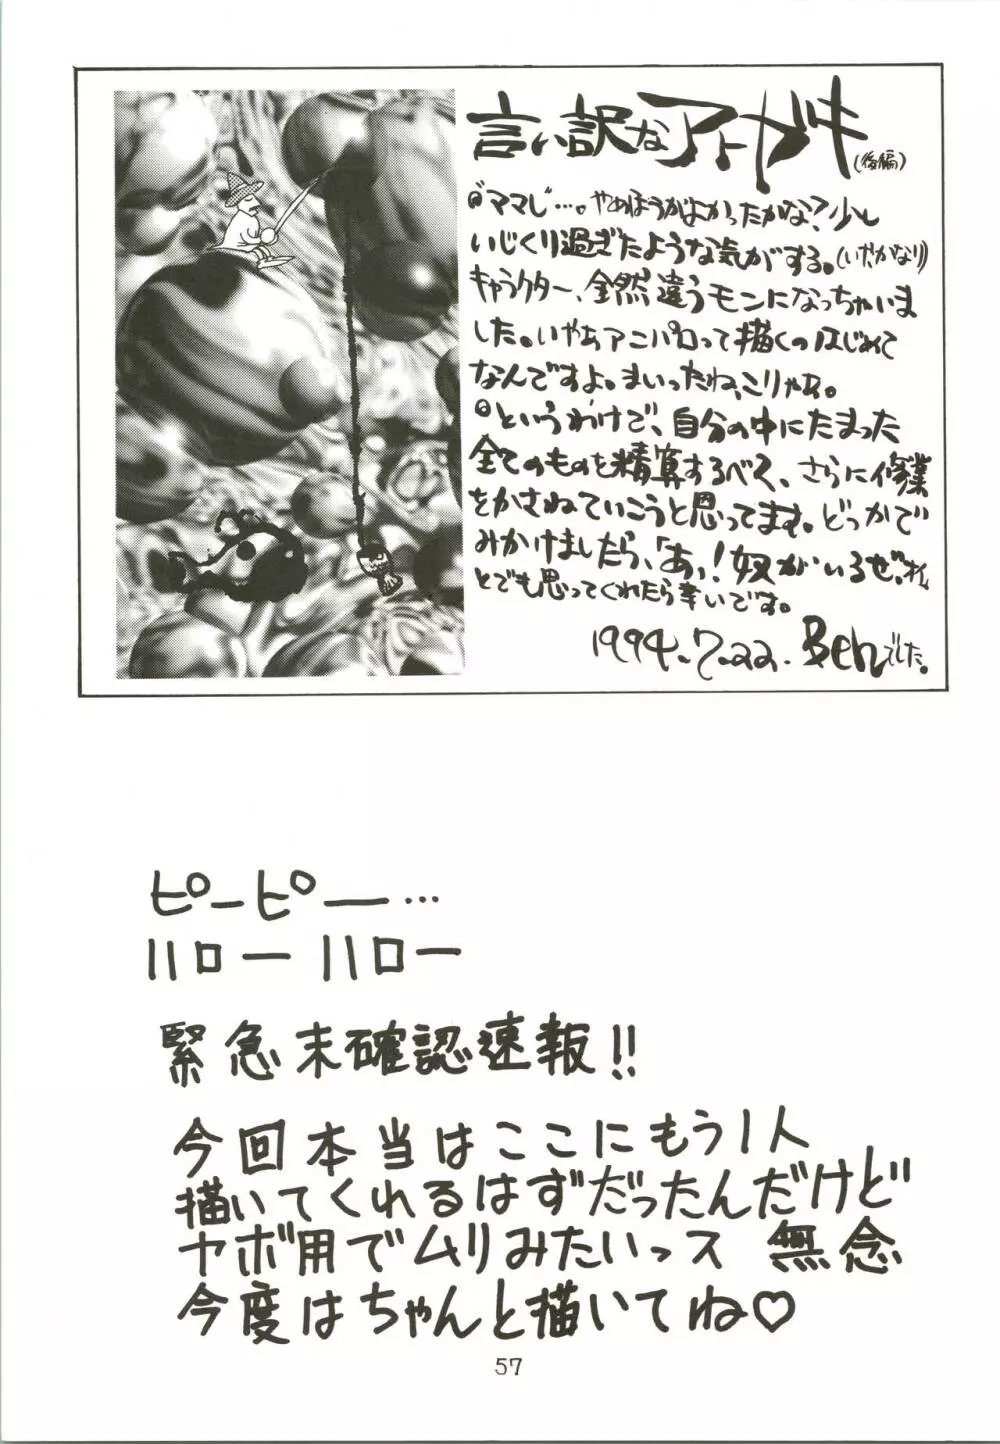 言い訳なアトガキ(後編)
◎"ママレ"…。やめほうがよかったかな?少し
いじくり過ぎたような気がする。(いやかなり)
キャラクター、全然違うモンになっちゃいま
した。いやぁアニパロって描くのはじめて
なんですよ。まいったね、こりゃぁ。
◎というわけで、自分の中にたまった
全てのものを精算するべく、さらに修業
をかさねていこうと思ってます。どっかで
みかけましたら、「あっ!奴がいるぜ。オイ」
とでも思ってくれたら幸いです。
1994.7.22. Benでした。
ピーピー…
ハローハロー
緊急未確認速報!!
今回本当はここにもう1人
描いてくれるはずだったんだけど
ヤボ用でムリみたいっス 無念
今度はちゃんと描いてね♡
57